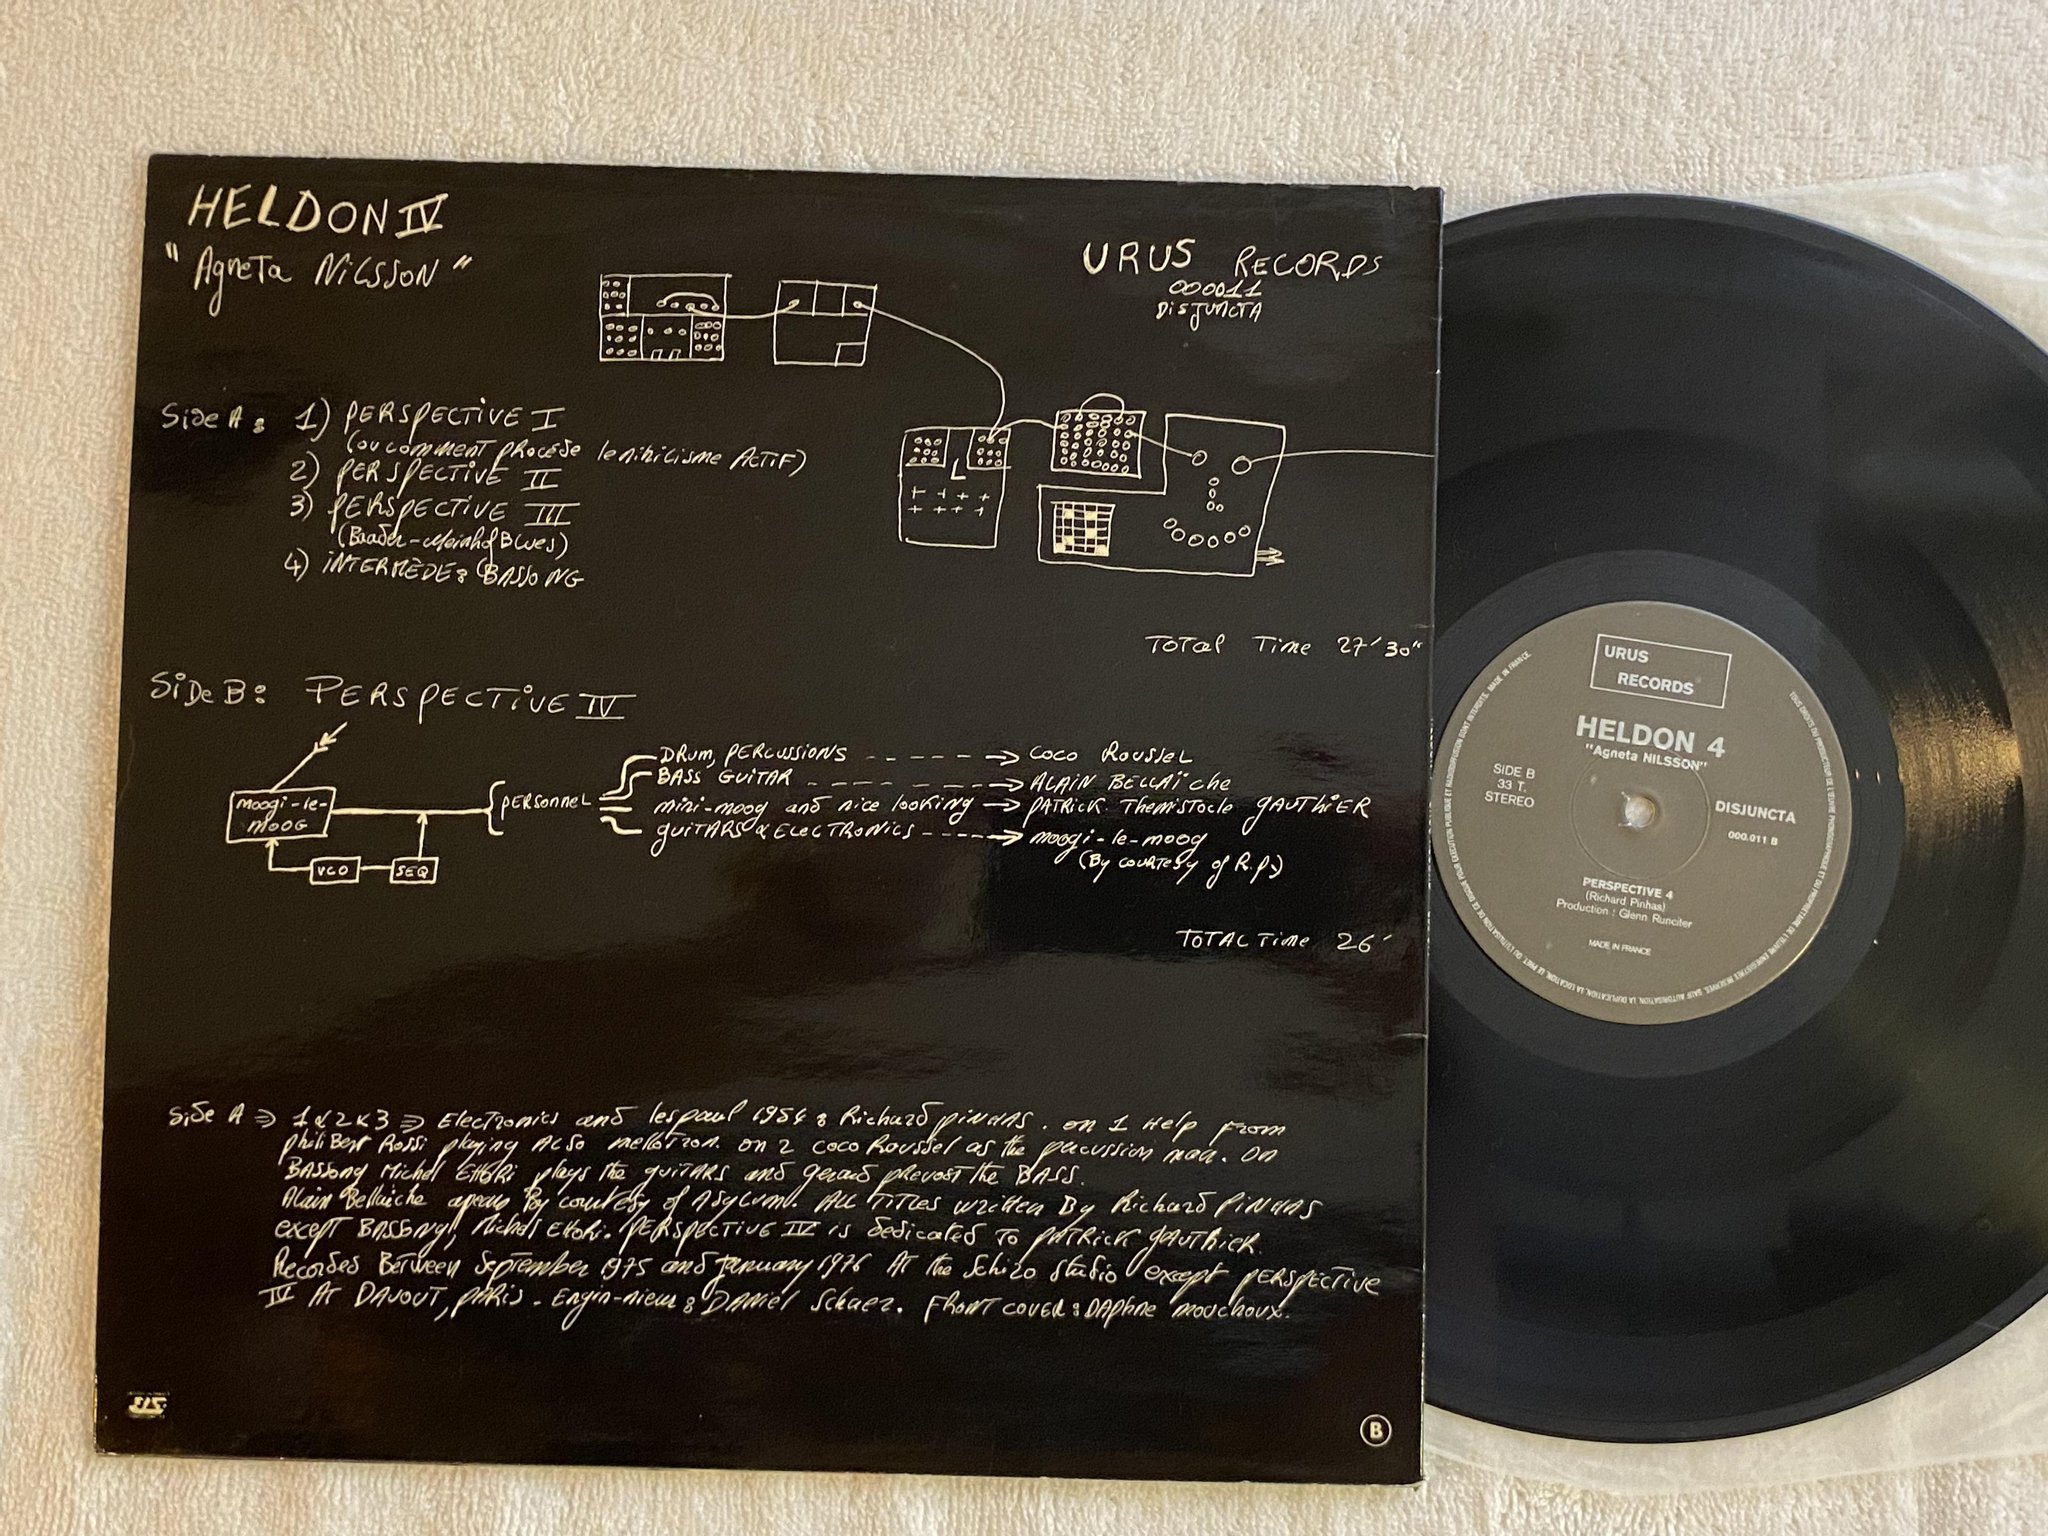 HELDON IV
"Agneta NILSSON"
URUS RECORDS
000011
DISJUNCTA
Side A: 1) PERSPECTIVE I
(ou comment procède le nihilisme ACTIF)
2) PERSPECTIVE II
3) PERSPECTIVE III
(Baader-Meinhof Blues)
4) INTERMÈDE: BASSONG
TOTAL Time 27'30"
SiDe B: PERSPECTIVE IV
Moogi-le-
MOOG
VCO
SEQ
PERSONNEL
DRUM, PERCUSSIONS - - - - → COCO ROUSSEL
BASS GUITAR - - - - - → ALAIN BELLAÏCHE
mini-moog and nice looking → PATRICK Themistocle GAUTHIER
GUITARS & ELECTRONICS - - - - → moogi-le-moog
(By courtesy of R.P.)
TOTAL Time 26'
Side A ⇒ 1 & 2 & 3 ⇒ Electronics and lespaul 1954 : Richard PINHAS. on 1 Help From
PhiliBert Rossi playing ALSO mellotron. on 2 COCO Roussel as the percussion man. ON
BASSong Michel ETTORI plays the guitars and Gerard prevost the BASS.
Alain Bellaiche appears By courtesy of ASYLUM. ALL TITLES written By Richard PINHAS
except BASSONG, Michel Ettori. PERSPECTIVE IV is dedicated TO PATRICK GAUTHIER.
Recorded Between September 1975 and January 1976 At the Schizo studio except PERSPECTIVE
IV AT DAVOUT, PARIS. Engin-nieur : DANIEL Schaer. FRONT COVER : DAPHNE MOUCHOUX.
B
URUS
RECORDS
HELDON 4
"Agneta NILSSON"
SIDE B
33 T.
STEREO
DISJUNCTA
000.011 B
PERSPECTIVE 4
(Richard Pinhas)
Production : Glenn Runciter
MADE IN FRANCE
TOUS DROITS DU PRODUCTEUR DE L'ŒUVRE PHONOGRAPHIQUE ET DU PROPRIETAIRE DE L'ŒUVRE ENREGISTREE RESERVES. SAUF AUTORISATION, LA DUPLICATION, LA LOCATION, LE PRET OU L'UTILISATION DE CE DISQUE POUR EXECUTION PUBLIQUE ET RADIODIFFUSION SONT INTERDITS. MADE IN FRANCE.